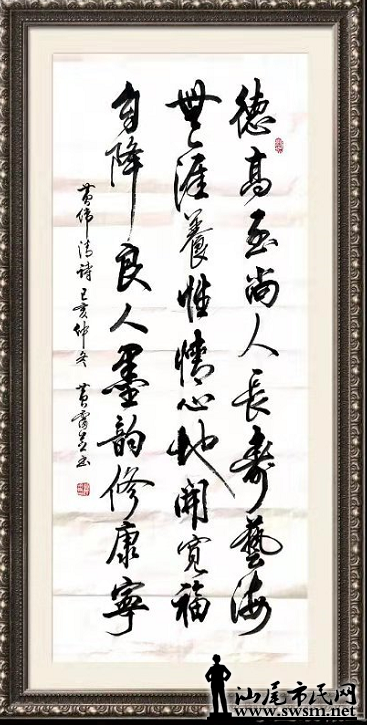 德高至尚人長壽藝海
無涯養性情心地開寬福
自降良人墨韵修康寧
黄伟诗己亥仲冬黄书
汕尾市民网
www.swsm.net